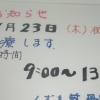 お知らせ
7月23日(木)
療します。
時間
9:00～13